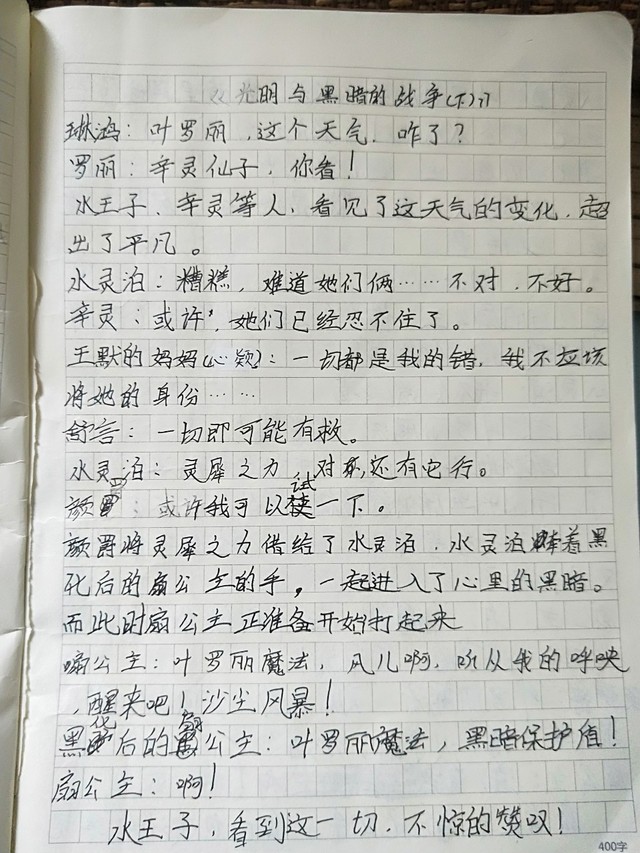 《光明与黑暗的战争(下)》
琳鸿：叶罗丽，这个天气，咋了？
罗丽：辛灵仙子，你看！
水王子、辛灵等人，看见了这天气的变化，超
出了平凡。
水灵泊：糟糕，难道她们俩……不对，不好。
辛灵：或许，她们已经忍不住了。
王默的妈妈(心颖)：一切都是我的错，我不应该
将她的身份……
舒言：一切即可能有救。
水灵泊：灵犀之力，对，还有它行。
颜爵：或许我可以试一下。
颜爵将灵犀之力借给了水灵泊，水灵泊牵着黑
化后的扇公主的手，一起进入了心里的黑暗。
而此时扇公主正准备开始打起来
扇公主：叶罗丽魔法，风儿啊，听从我的呼唤
，醒来吧！沙尘风暴！
黑化后的扇公主：叶罗丽魔法，黑暗保护盾！
扇公主：啊！
水王子，看到这一切，不惊的赞叹！
400字